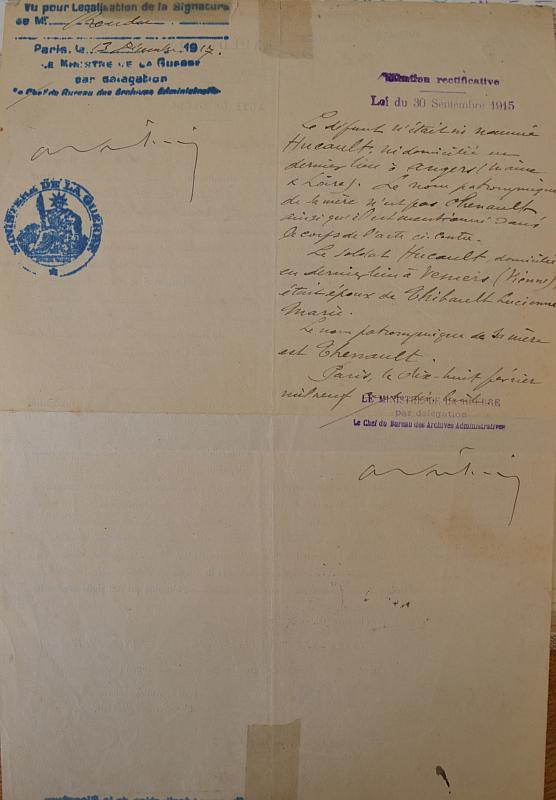 Vu pour Légalisation de la Signature
de Mr.
Paris, le 13 191
LE MINISTRE DE LA GUERRE
par délégation
Le Chef du Bureau des Archives Administratives
MINISTÈRE DE LA GUERRE
Mention rectificative
Loi du 30 Septembre 1915
Le défunt n'était ni nommé
Hucault, ni domicilié en
dernier lieu à Angers (Maine
& Loire). Le nom patronymique
de la mère n'est pas Chenault
ainsi qu'il est mentionné dans
le corps de l'acte ci-contre.
Le soldat Hucault, domicilié
en dernier lieu à (Vienne),
était époux de Thibault Lucienne
Marie.
Le nom patronymique de sa mère
est Thenault.
Paris, le dix-huit février
mil neuf
LE MINISTRE DE LA GUERRE
par délégation
Le Chef du Bureau des Archives Administratives